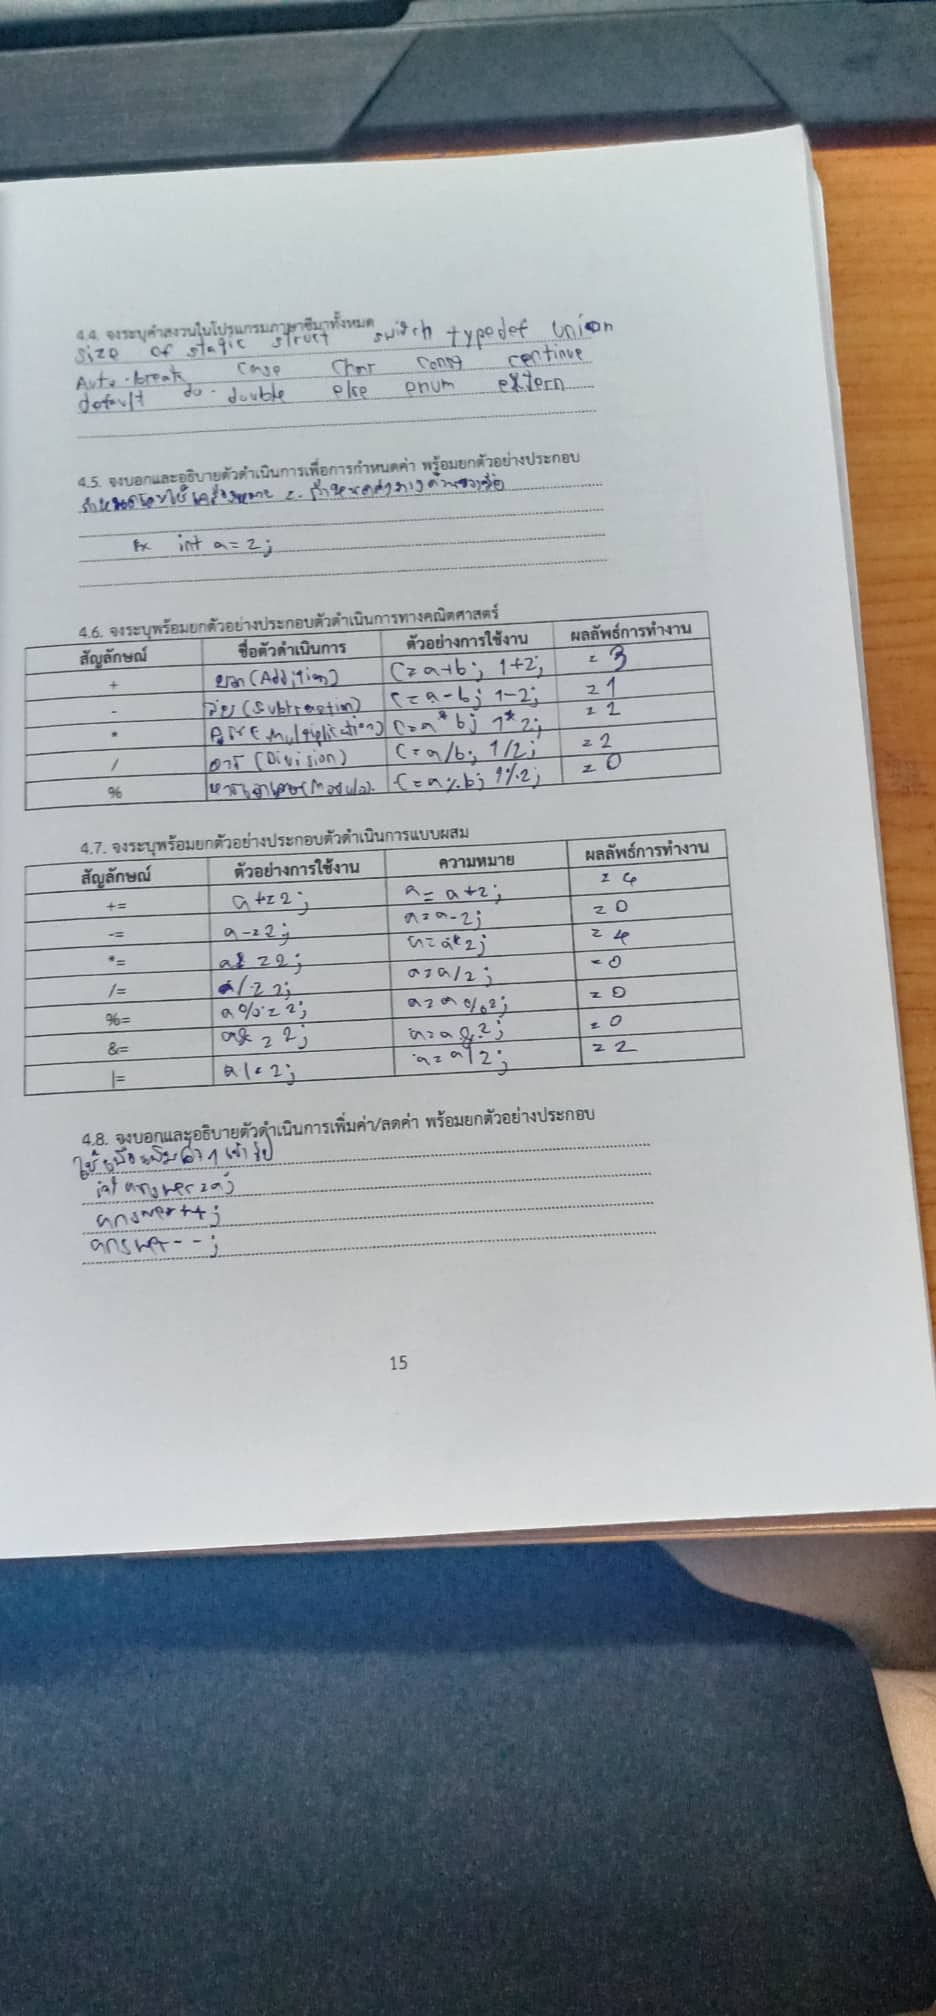 4.4. จงระบุคำสงวนในโปรแกรมภาษาซีมาทั้งหมด
size of static struct switch typedef union
Auto break case char const continue
default do double else enum extern
4.5. จงบอกและอธิบายตัวดำเนินการเพื่อการกำหนดค่า พร้อมยกตัวอย่างประกอบ
Ex int a = 2;
4.6. จงระบุพร้อมยกตัวอย่างประกอบตัวดำเนินการทางคณิตศาสตร์
สัญลักษณ์ ชื่อตัวดำเนินการ ตัวอย่างการใช้งาน ผลลัพธ์การทำงาน
+ บวก (Addition) C = a+b; 1+2; = 3
- ลบ (Subtraction) C = a-b; 1-2; = 1
* คูณ (multiplication) C = a*b; 1*2; = 2
/ หาร (Division) C = a/b; 1/2; = 2
% หารเอาเศษ (Modulo) C = a%b; 1%2; = 0
4.7. จงระบุพร้อมยกตัวอย่างประกอบตัวดำเนินการแบบผสม
สัญลักษณ์ ตัวอย่างการใช้งาน ความหมาย ผลลัพธ์การทำงาน
+= a+=2; a = a+2; = 4
-= a-=2; a=a-2; = 0
*= =2; a=a*2; = 4
/= a/=2; a=a/2; = 0
%= a%=2; a=a%2; = 0
&= a&=2; a=a&2; = 0
|= a|=2; a=a|2; = 2
4.8. จงบอกและอธิบายตัวดำเนินการเพิ่มค่า/ลดค่า พร้อมยกตัวอย่างประกอบ
int answer=a;
answer++;
answer--;
15